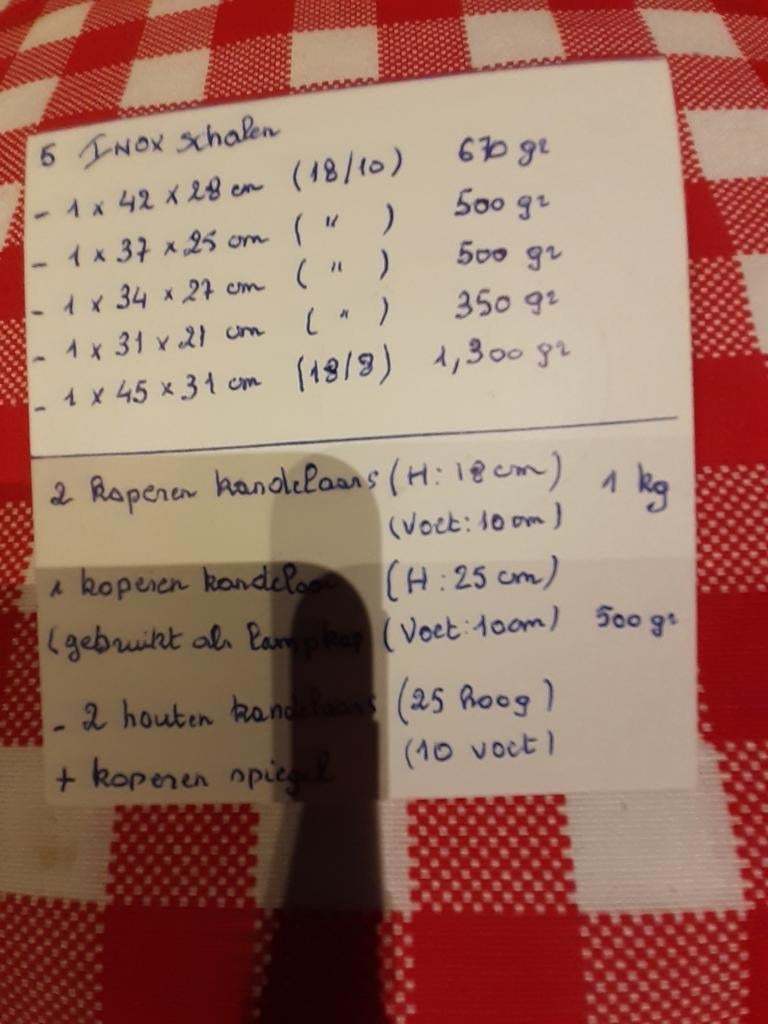 5 INOX schalen
- 1 x 42 x 28 cm (18/10) 670 gr
- 1 x 37 x 25 cm ( " ) 500 gr
- 1 x 34 x 27 cm ( " ) 500 gr
- 1 x 31 x 21 cm ( " ) 350 gr
- 1 x 45 x 31 cm (18/8) 1,300 gr
2 koperen kandelaars (H: 18 cm) 1 kg
(Voet: 10 cm)
1 koperen kandelaar (H: 25 cm)
(gebruikt als lampkap (Voet: 10 cm) 500 gr
- 2 houten kandelaars (25 hoog)
(10 voet)
+ koperen spiegel